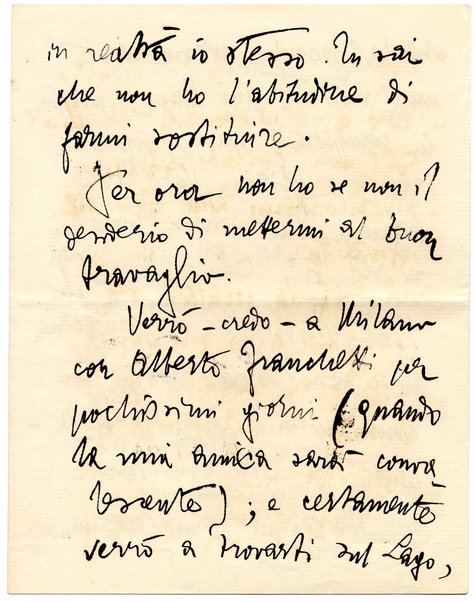 in realtà io stesso. Tu sai
che non ho l'abitudine di
farmi sostituire.
Per ora non ho se non il
desiderio di mettermi al buon
travaglio.
Verrò – credo – a Milano
con Alberto Franchetti per
pochissimi giorni (quando
la mia amica sarà conva-
lescente); e certamente
verrò a trovarti sul Lago,